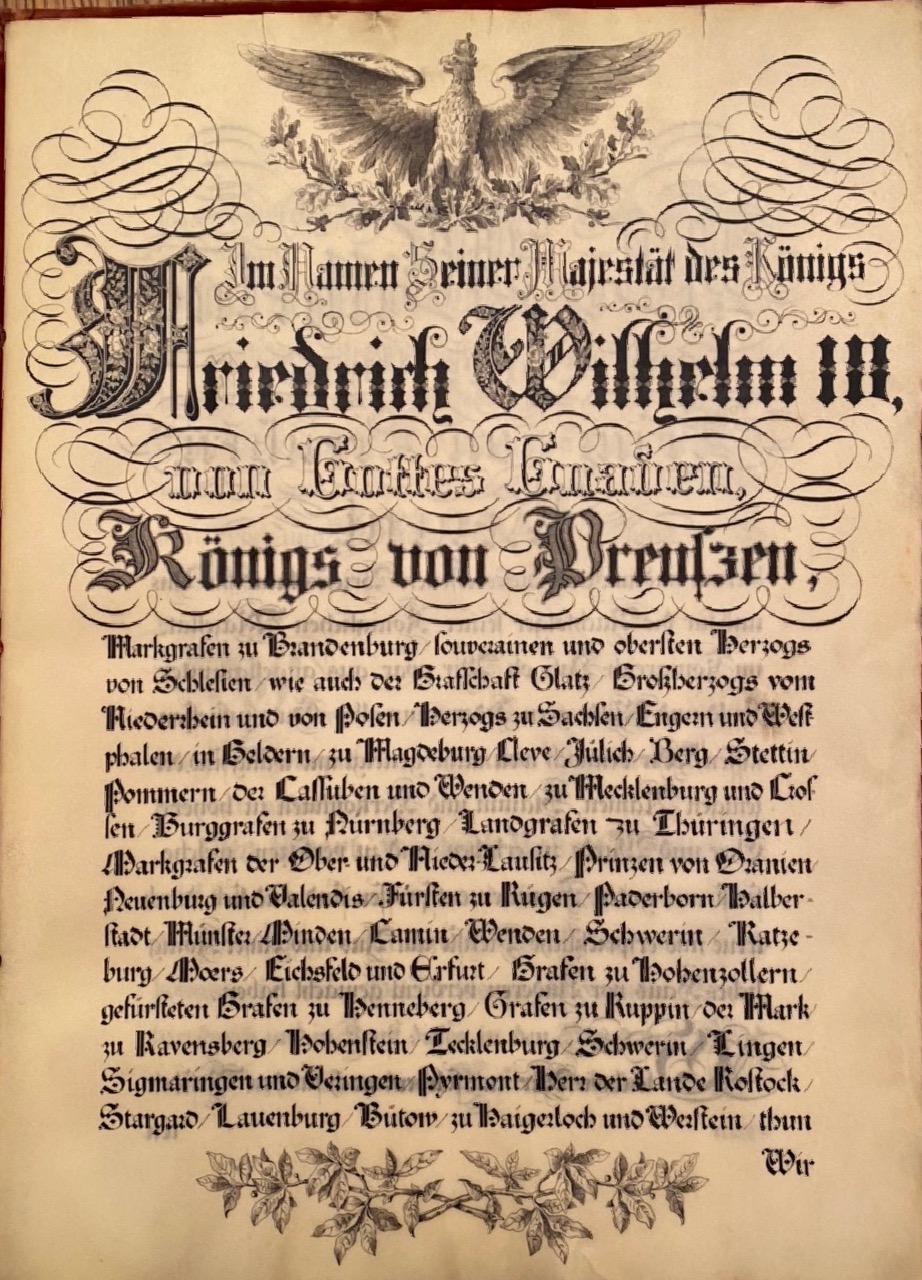 Im Namen Seiner Majestät des Königs
Friedrich Wilhelm III,
von Gottes Gnaden,
Königs von Preuſzen,
Markgrafen zu Brandenburg/ſouverainen und oberſten Herzogs
von Schleſien/wie auch der Grafſchaft Glatz/Großherzogs vom
Niederrhein und von Poſen/Herzogs zu Sachſen/Engern und Weſt
phalen/in Geldern/zu Magdeburg/Cleve/Jülich/Berg/Stettin/
Pommern/der Caſſuben und Wenden/zu Mecklenburg und Croſ
ſen/Burggrafen zu Nürnberg/Landgrafen zu Thüringen/
Markgrafen der Ober- und Nieder-Lauſitz/Prinzen von Oranien/
Neuenburg und Valendis/Fürſten zu Rügen/Paderborn/Halber-
ſtadt/Münſter/Minden/Camin/Wenden/Schwerin/Ratze-
burg/Moers/Eichsfeld und Erfurt/Grafen zu Hohenzollern/
gefürſteten Grafen zu Henneberg/Grafen zu Ruppin/der Mark/
zu Ravensberg/Hohenſtein/Tecklenburg/Schwerin/Lingen/
Sigmaringen und Veringen/Pyrmont/Herr der Lande Roſtock/
Stargard/Lauenburg/Bütow/zu Haigerloch und Werſtein/thun
Wir